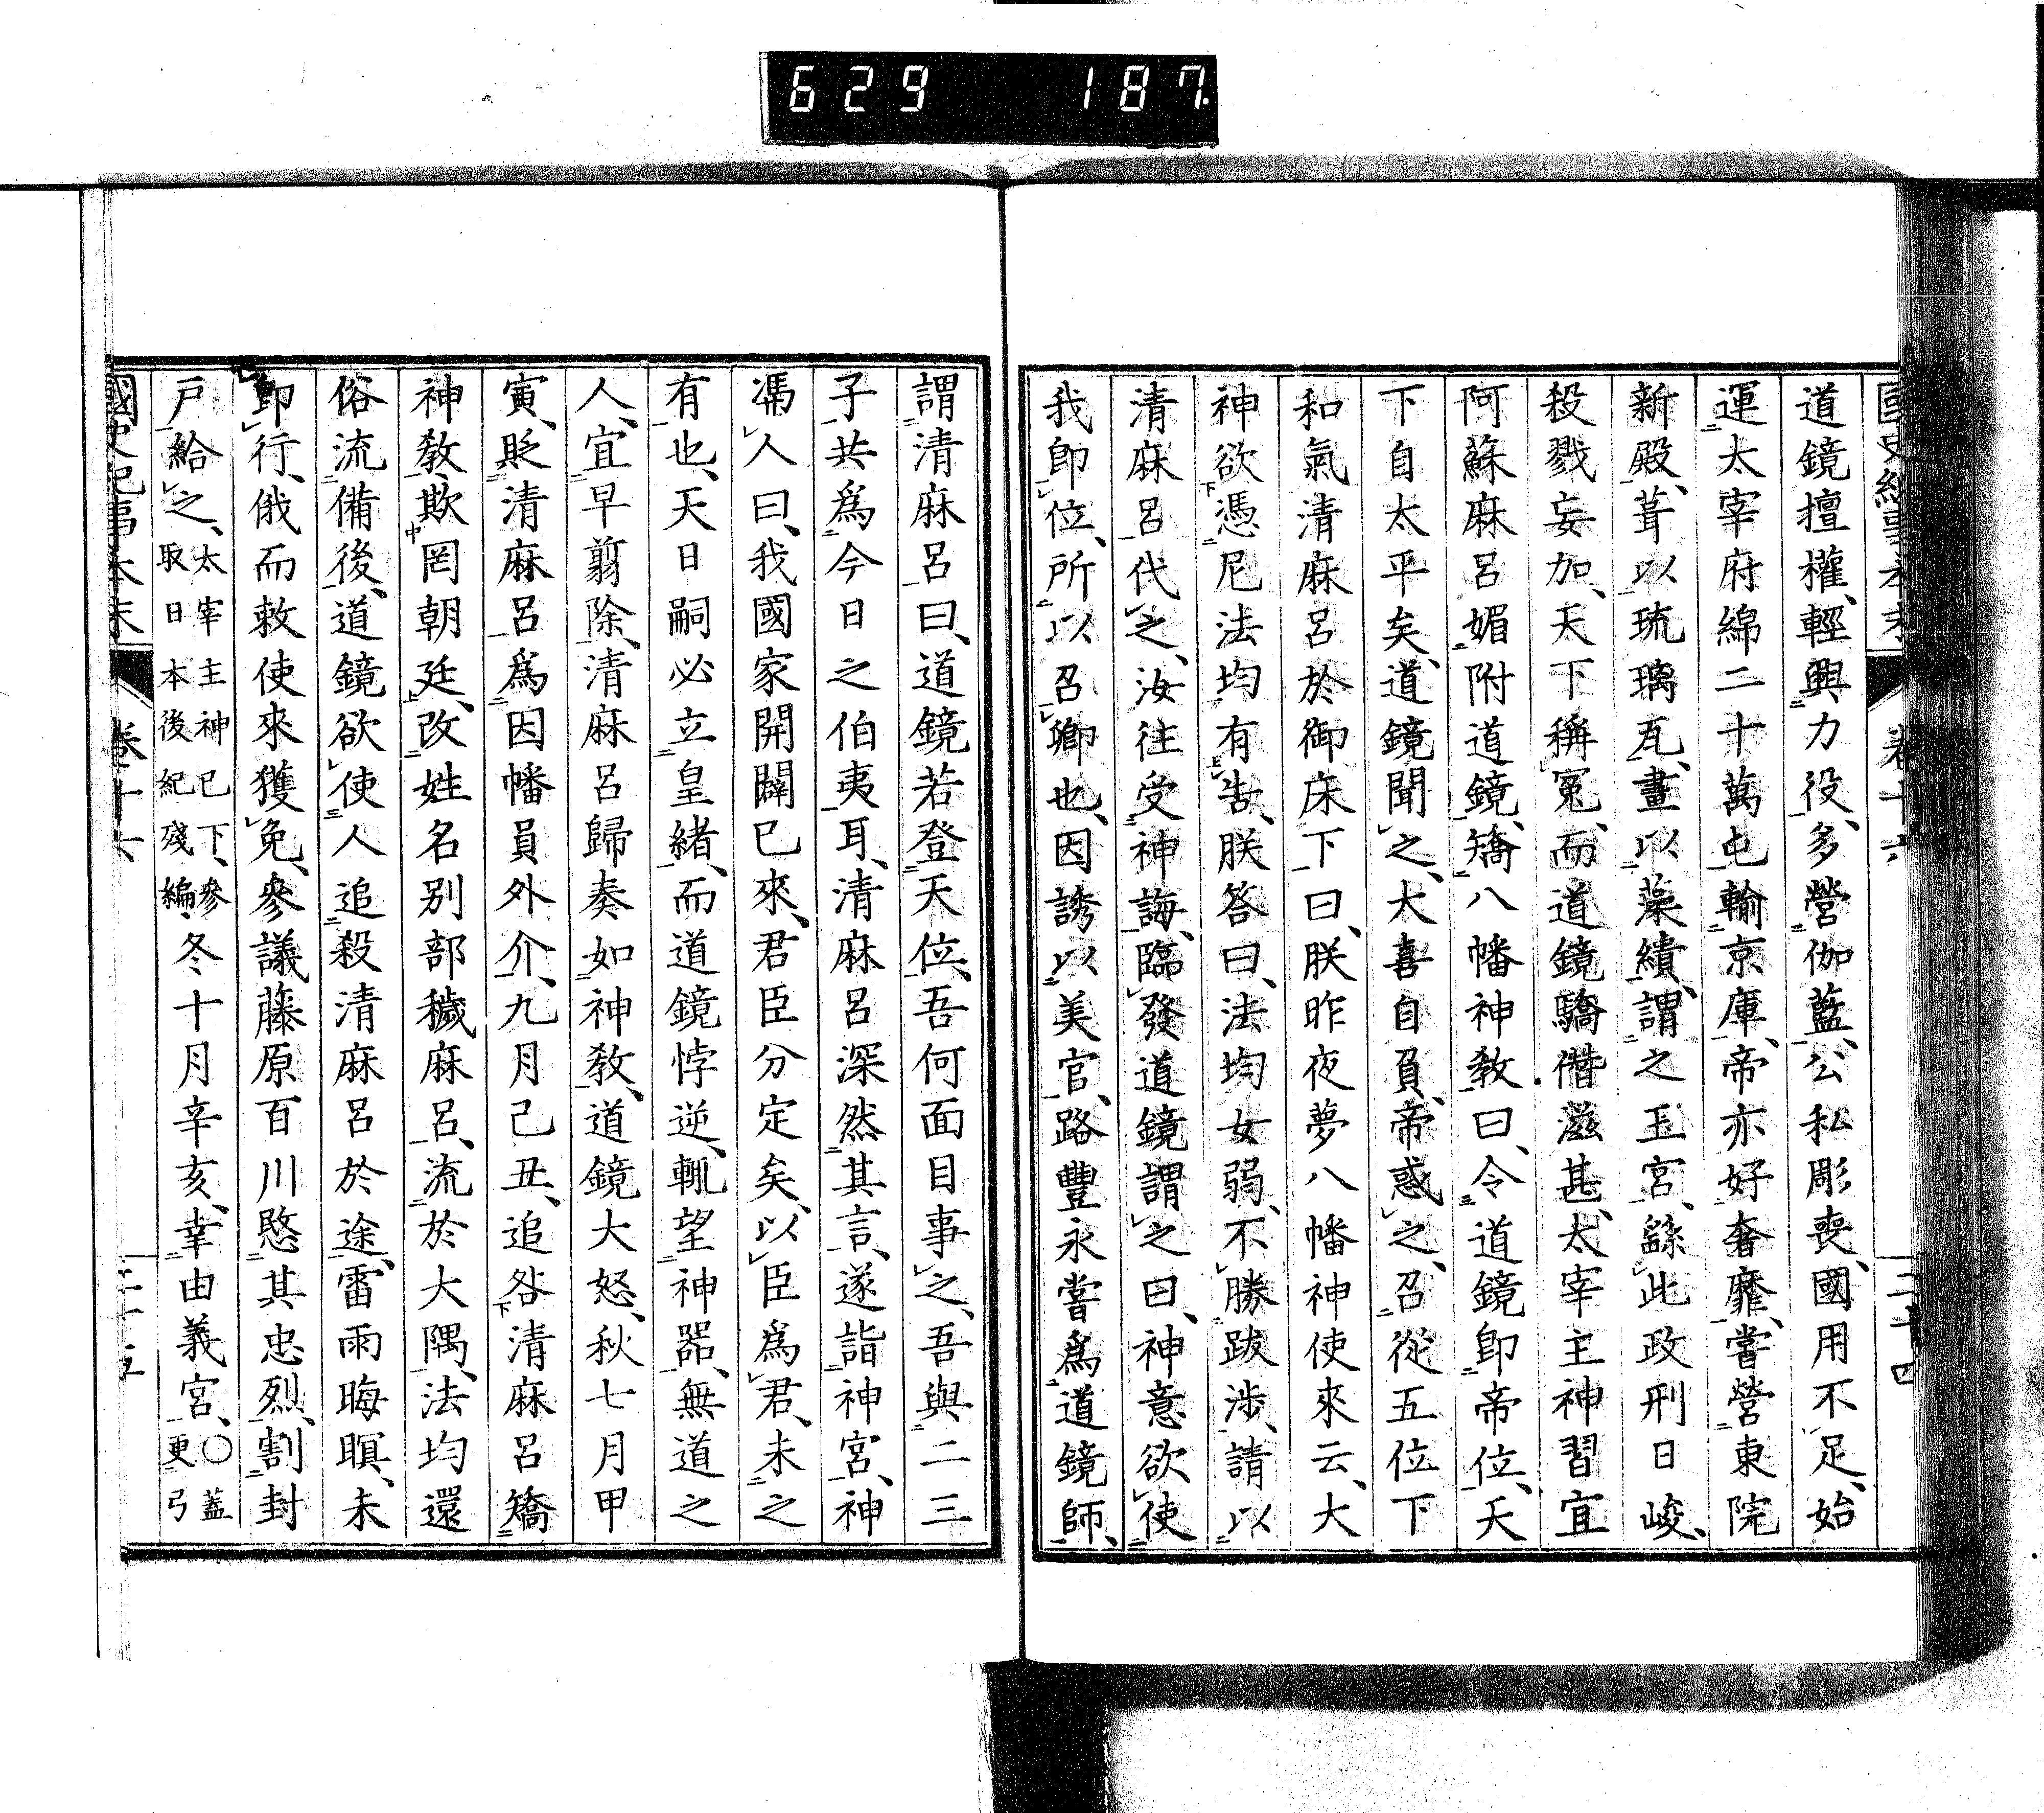 629 187.
道鏡擅權、輕興力役、多營伽藍、公私彫喪、國用不足、始
運太宰府綿二十萬屯輸京庫、帝亦好奢靡、嘗營東院
新殿、葺以琉璃瓦、畫以藻繢、謂之玉宮、繇此政刑日峻、
殺戮妄加、天下稱冤、而道鏡驕僭滋甚、太宰主神習宜
阿蘇麻呂媚附道鏡、矯八幡神敎曰、令道鏡卽帝位、天
下自太平矣、道鏡聞之、大喜自負、帝惑之、召從五位下
和氣清麻呂於御床下曰、朕昨夜夢八幡神使來云、大
神欲憑尼法均有告、朕答曰、法均女弱、不勝跋涉、請以
清麻呂代之、汝往受神誨、臨發道鏡謂之曰、神意欲使
我卽位、所以召卿也、因誘以美官、路豐永嘗爲道鏡師、
謂清麻呂曰、道鏡若登天位、吾何面目事之、吾與二三
子共爲今日之伯夷耳、清麻呂深然其言、遂詣神宮、神
馮人曰、我國家開闢已來、君臣分定矣、以臣爲君、未之
有也、天日嗣必立皇緖、而道鏡悖逆、輒望神器、無道之
人、宜早翦除、清麻呂歸奏如神敎、道鏡大怒、秋七月甲
寅、貶清麻呂爲因幡員外介、九月己丑、追咎清麻呂矯
神敎、欺罔朝廷、改姓名別部穢麻呂、流於大隅、法均還
俗流備後、道鏡欲使人追殺清麻呂於途、雷雨晦暝、未
卽行、俄而敕使來獲免、參議藤原百川愍其忠烈、割封
戸給之、太宰主神已下、參取日本後紀殘編、冬十月辛亥、幸由義宮、〇蓋更弓
國史紀事本末 卷十六